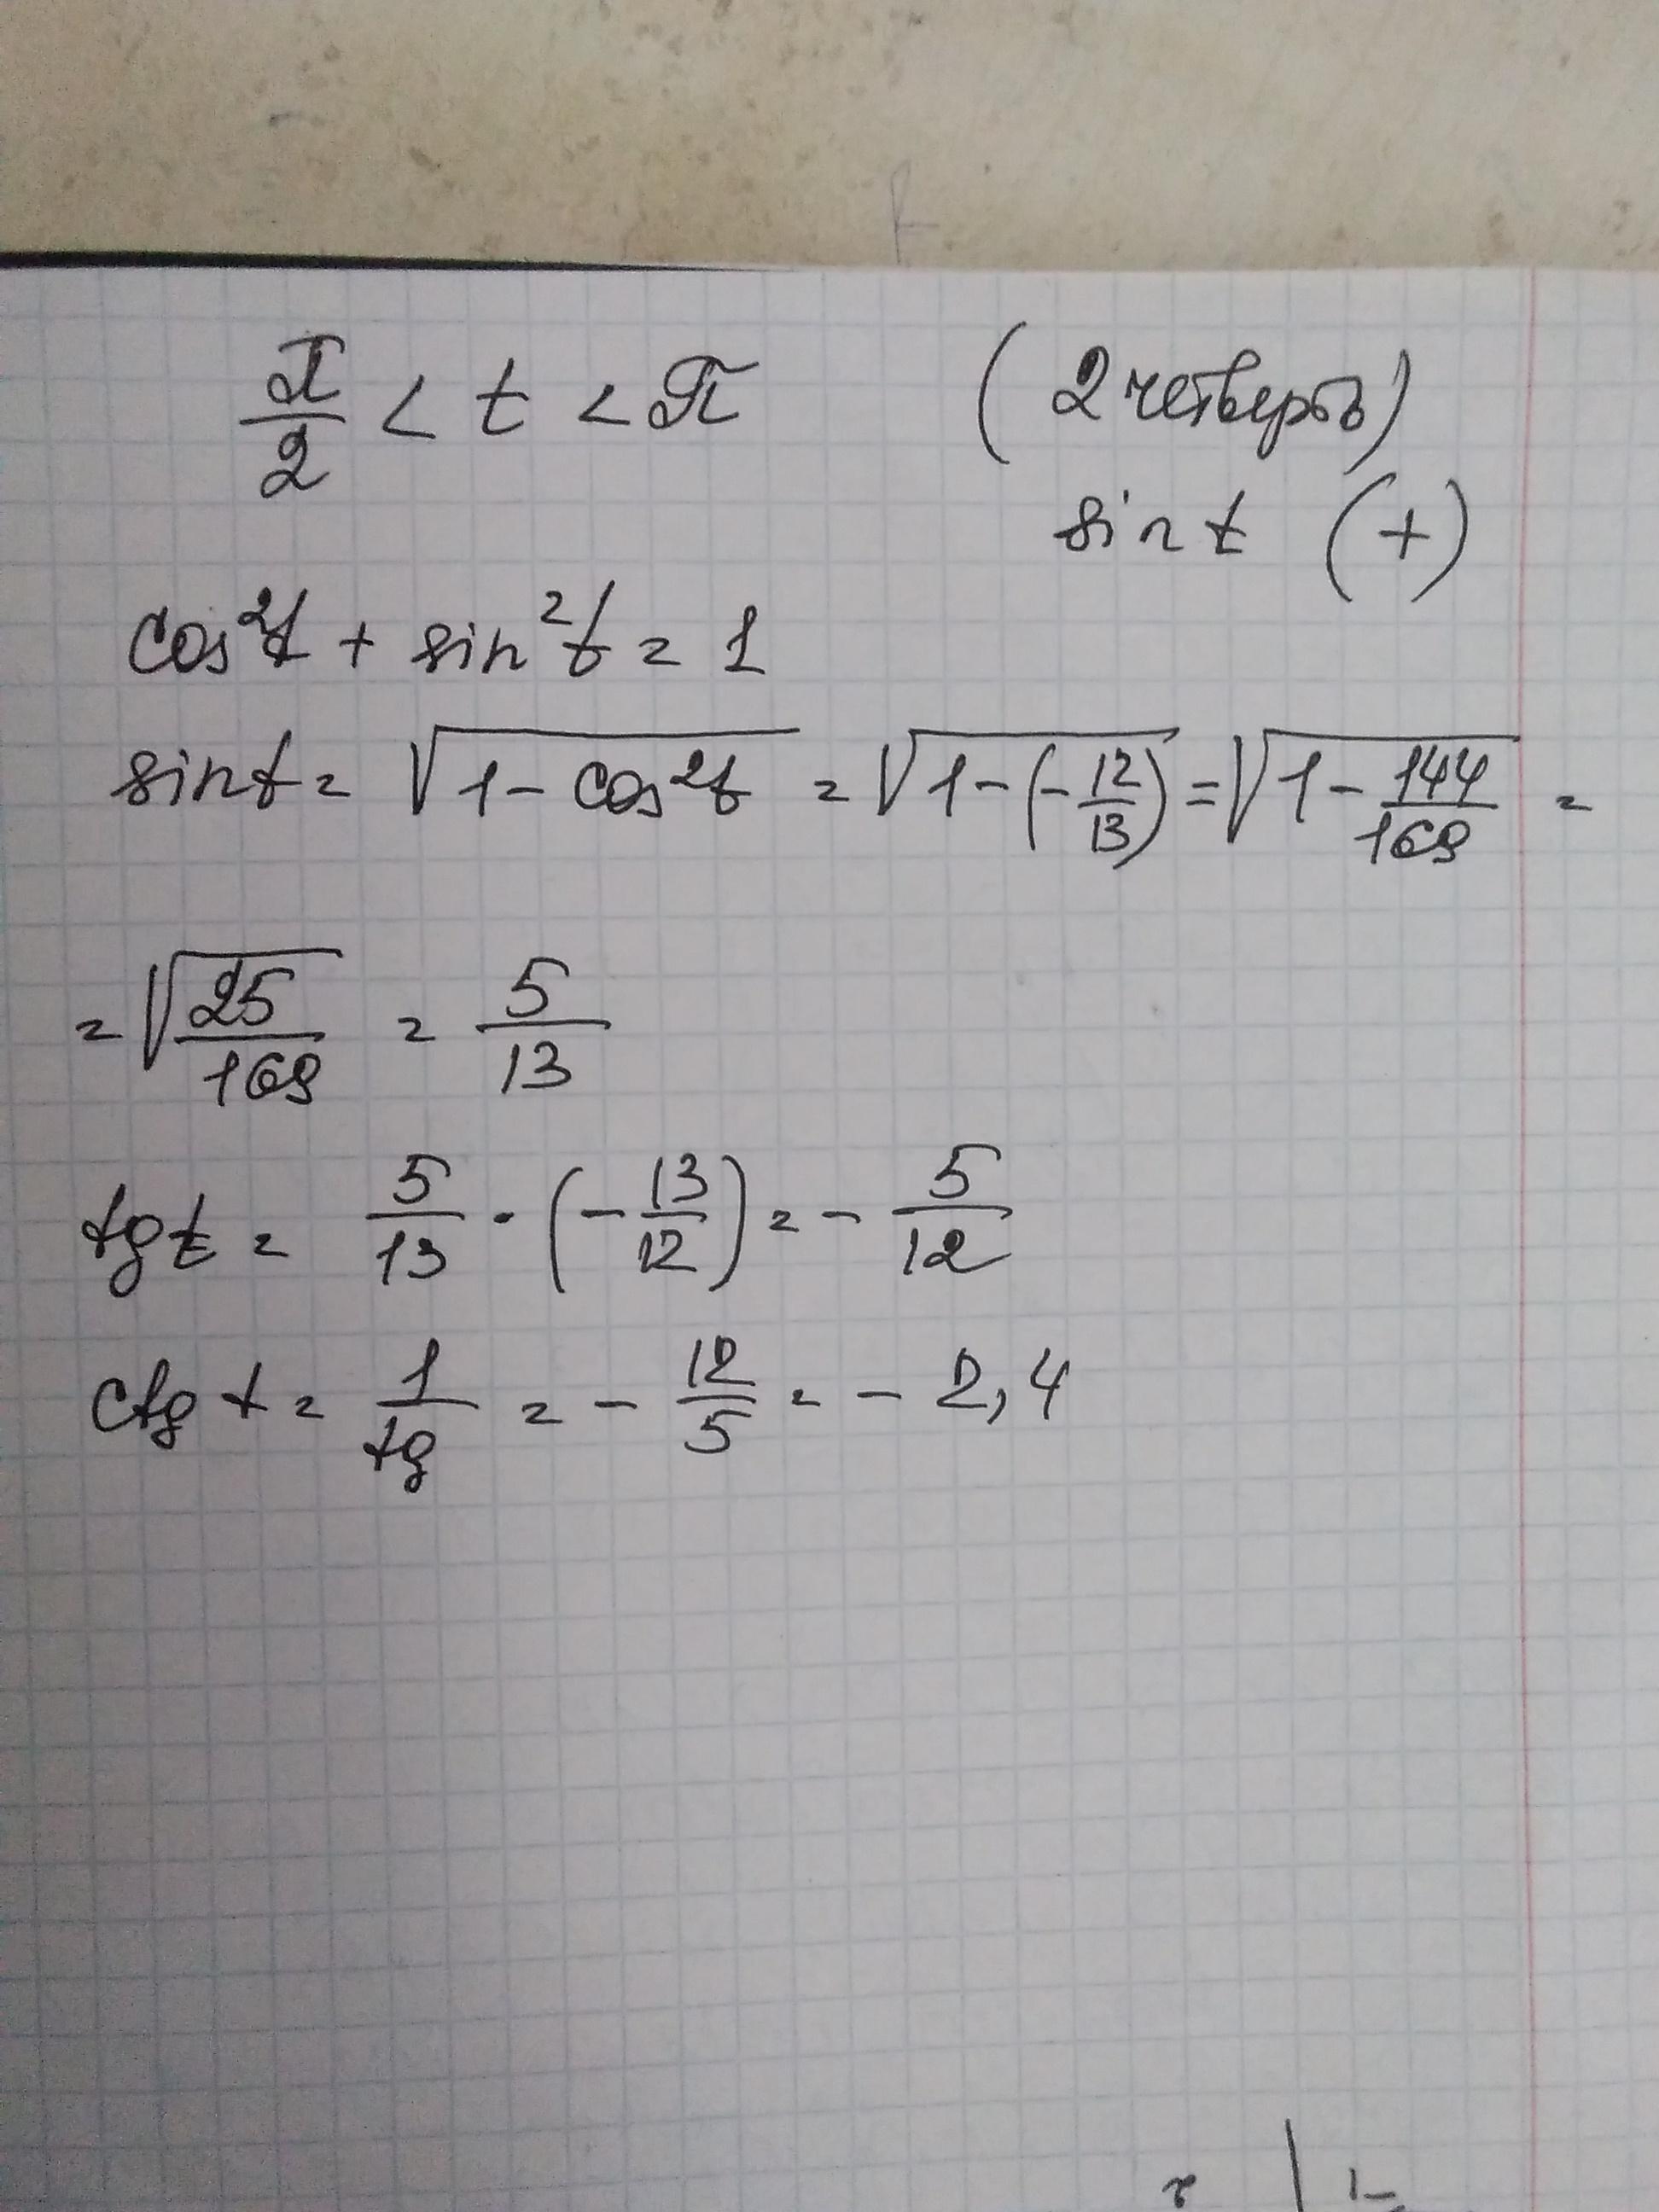 π/2 < t < π (2 четверть)
sin t (+)
cos²t + sin²t = 1
sin t = √(1 - cos²t) = √(1 - (-12/13)) = √(1 - 144/169) =
= √(25/169) = 5/13
tg t = 5/13 · (-13/12) = - 5/12
ctg t = 1/tg = - 12/5 = - 2,4